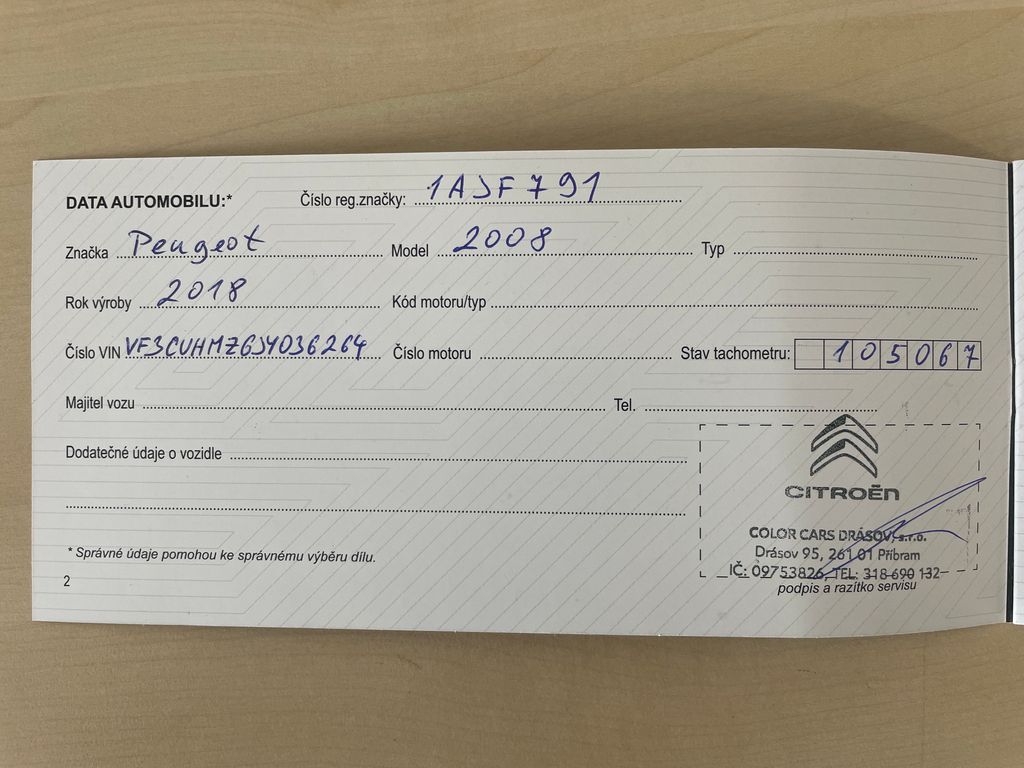 DATA AUTOMOBILU:* Číslo reg.značky: 1AJF791
Značka Peugeot Model 2008 Typ
Rok výroby 2018 Kód motoru/typ
Číslo VIN VF3CUHMZ6JY036264 Číslo motoru Stav tachometru: 105067
Majitel vozu Tel.
Dodatečné údaje o vozidle
CITROËN
COLOR CARS DRÁSOV, s.r.o.
Drásov 95, 261 01 Příbram
IČ: 09753826, TEL: 318 690 132
podpis a razítko servisu
* Správné údaje pomohou ke správnému výběru dílu.
2